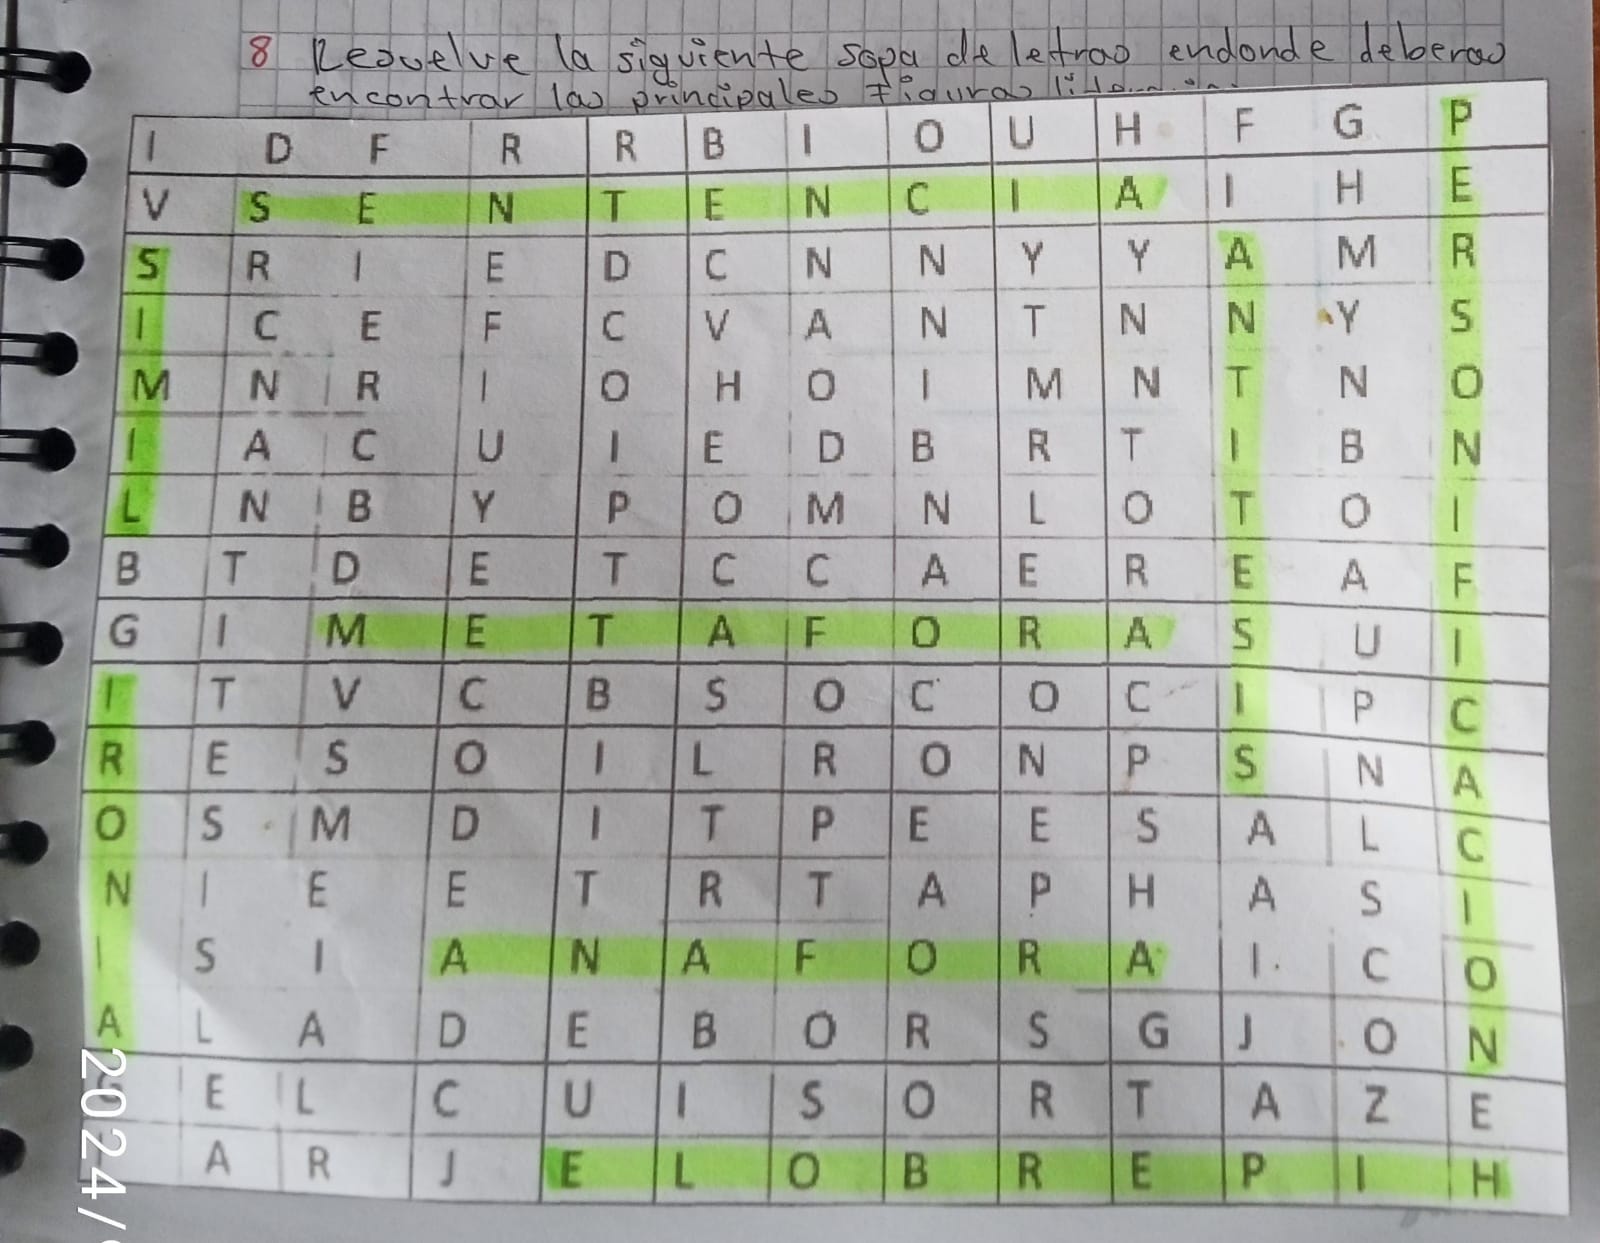 8 Resuelve la siguiente sopa de letras endonde deberas
encontrar las principales Figuras
I D F R R B I O U H F G P
V S E N T E N C I A I H E
S R I E D C N N Y Y A M R
I C E F C V A N T N N Y S
M N R I O H O I M N T N O
I A C U I E D B R T I B N
L N B Y P O M N L O T O I
B T D E T C C A E R E A F
G I M E T A F O R A S U I
I T V C B S O C O C I P C
R E S O I L R O N P S N A
O S M D I T P E E S A L C
N I E E T R T A P H A S I
I S I A N A F O R A I C O
A L A D E B O R S G J O N
E L C U I S O R T A Z E
A R J E L O B R E P I H
2024/